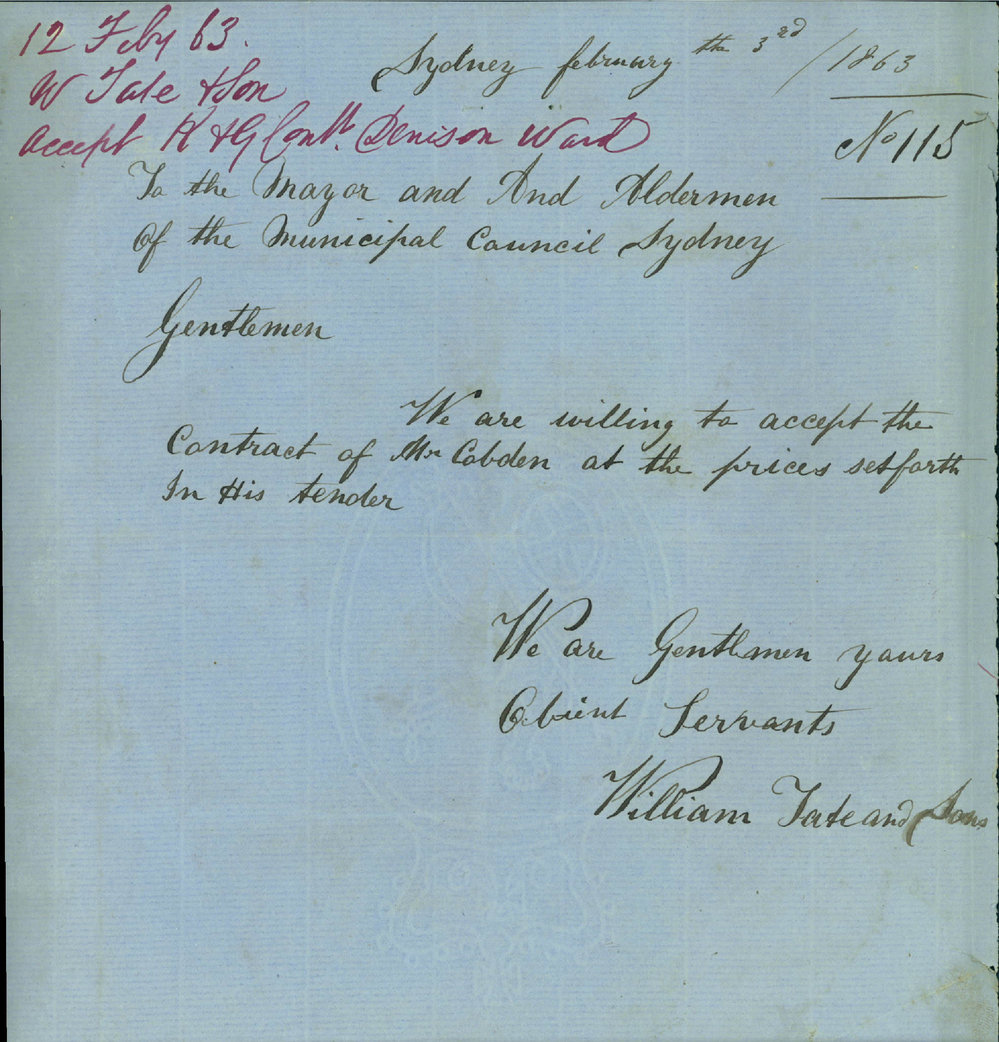 12 Feby 63.
W Tate & Son
accept K & G Contt. Denison Ward
Sydney february the 3rd / 1863
No 115
To the Mayor and And Aldermen
Of the Municipal Council Sydney
Gentlemen
We are willing to accept the
Contract of Mr Cobden at the prices setforth
In His tender
We are Gentlemen yours
Obient Servants
William Tate and Sons